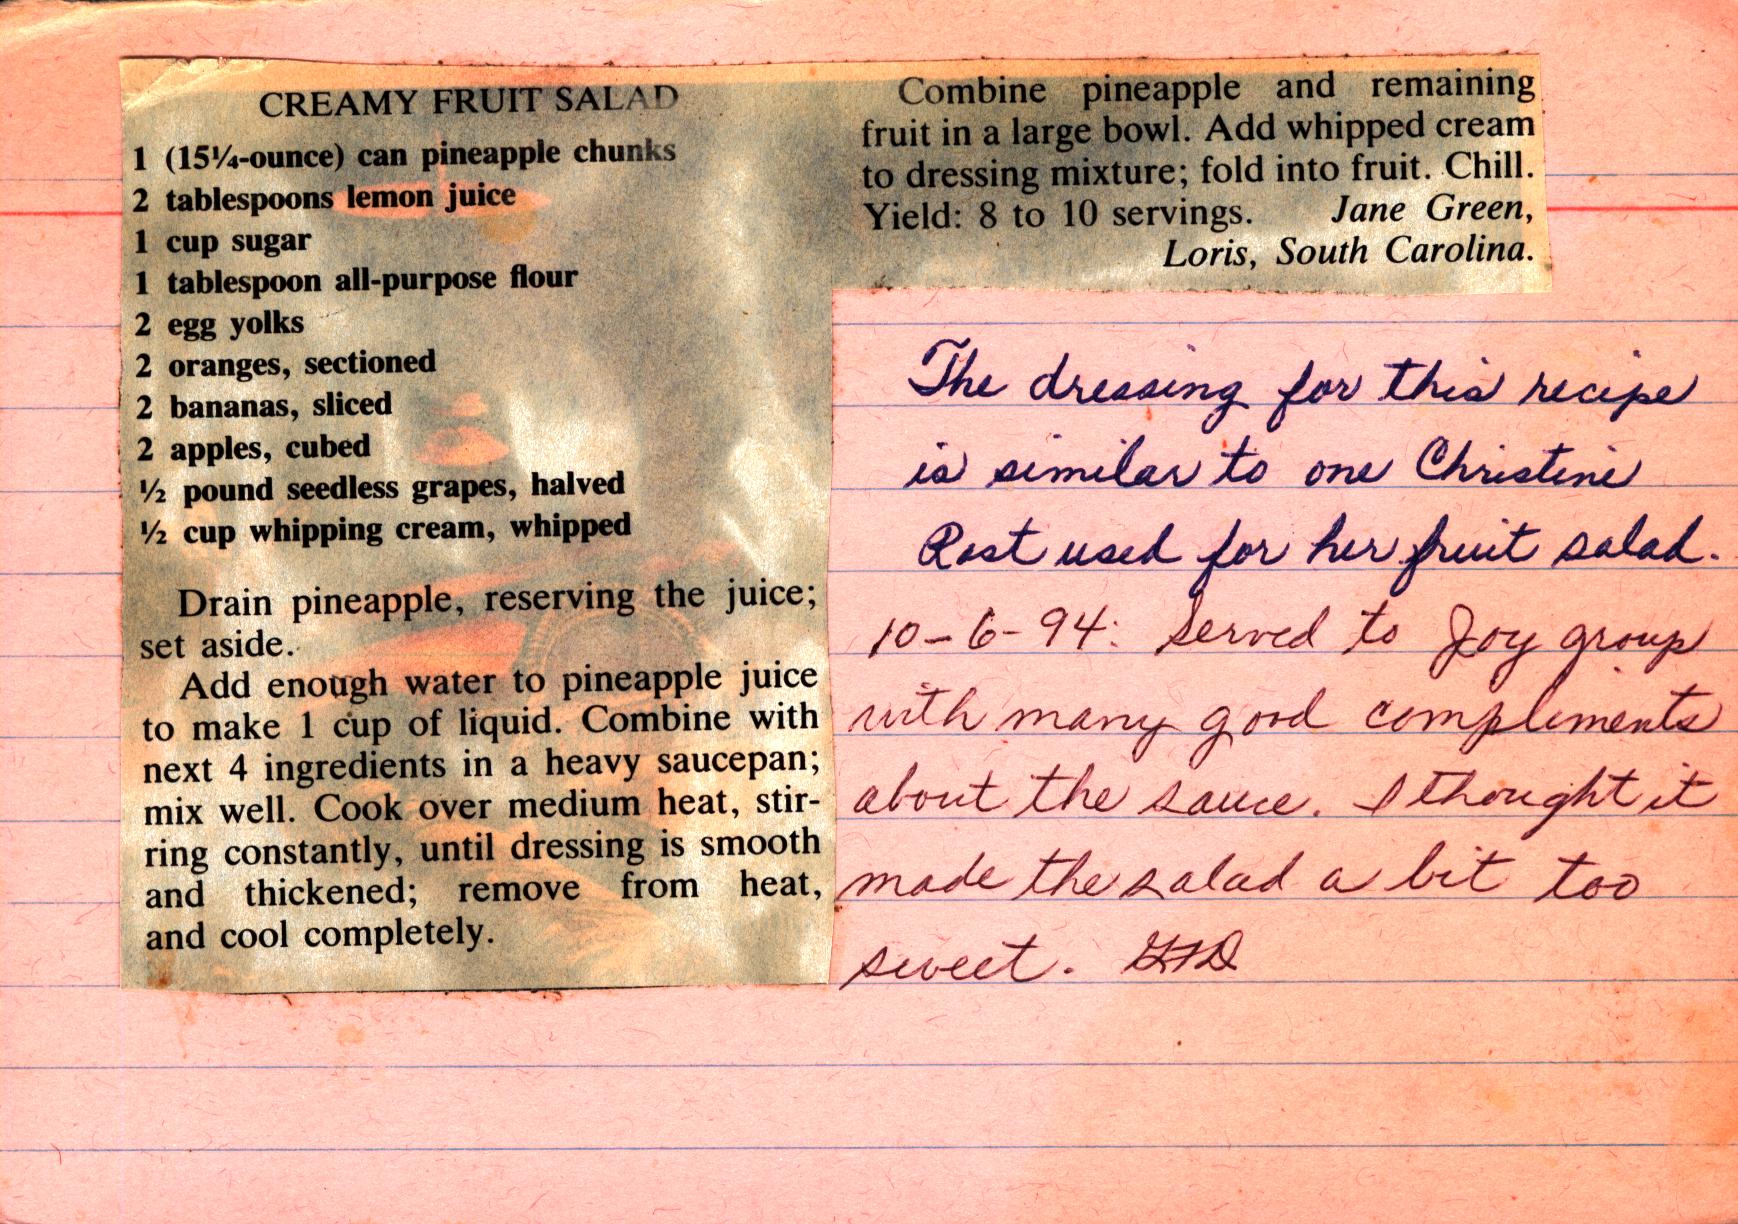 CREAMY FRUIT SALAD
1 (15¼-ounce) can pineapple chunks
2 tablespoons lemon juice
1 cup sugar
1 tablespoon all-purpose flour
2 egg yolks
2 oranges, sectioned
2 bananas, sliced
2 apples, cubed
½ pound seedless grapes, halved
½ cup whipping cream, whipped
Drain pineapple, reserving the juice;
set aside.
Add enough water to pineapple juice
to make 1 cup of liquid. Combine with
next 4 ingredients in a heavy saucepan;
mix well. Cook over medium heat, stir-
ring constantly, until dressing is smooth
and thickened; remove from heat,
and cool completely.
Combine pineapple and remaining
fruit in a large bowl. Add whipped cream
to dressing mixture; fold into fruit. Chill.
Yield: 8 to 10 servings. Jane Green,
Loris, South Carolina.
The dressing for this recipe
is similar to one Christine
Rost used for her fruit salad.
10-6-94: Served to Joy group
with many good compliments
about the sauce. I thought it
made the salad a bit too
sweet.